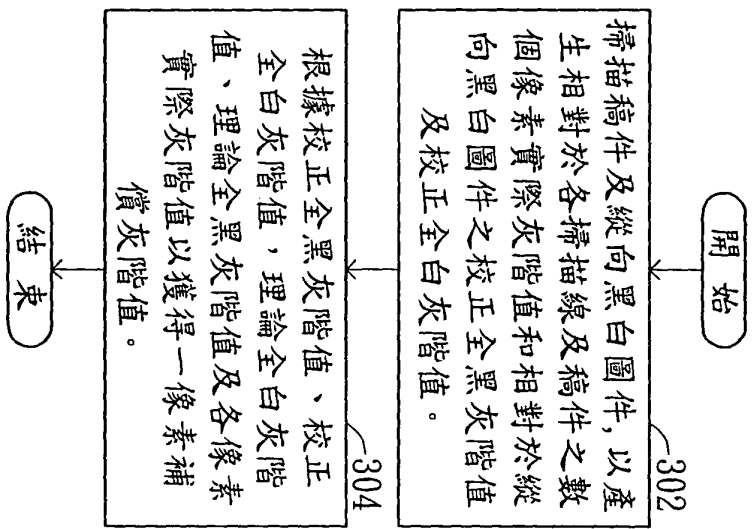 開始
302
掃描稿件及縱向黑白圖件,以產
生相對於各掃描線及稿件之數
個像素實際灰階值和相對於縱
向黑白圖件之校正全黑灰階值
及校正全白灰階值。
304
根據校正全黑灰階值、校正
全白灰階值，理論全白灰階
值、理論全黑灰階值及各像素
實際灰階值以獲得一像素補
償灰階值。
結束